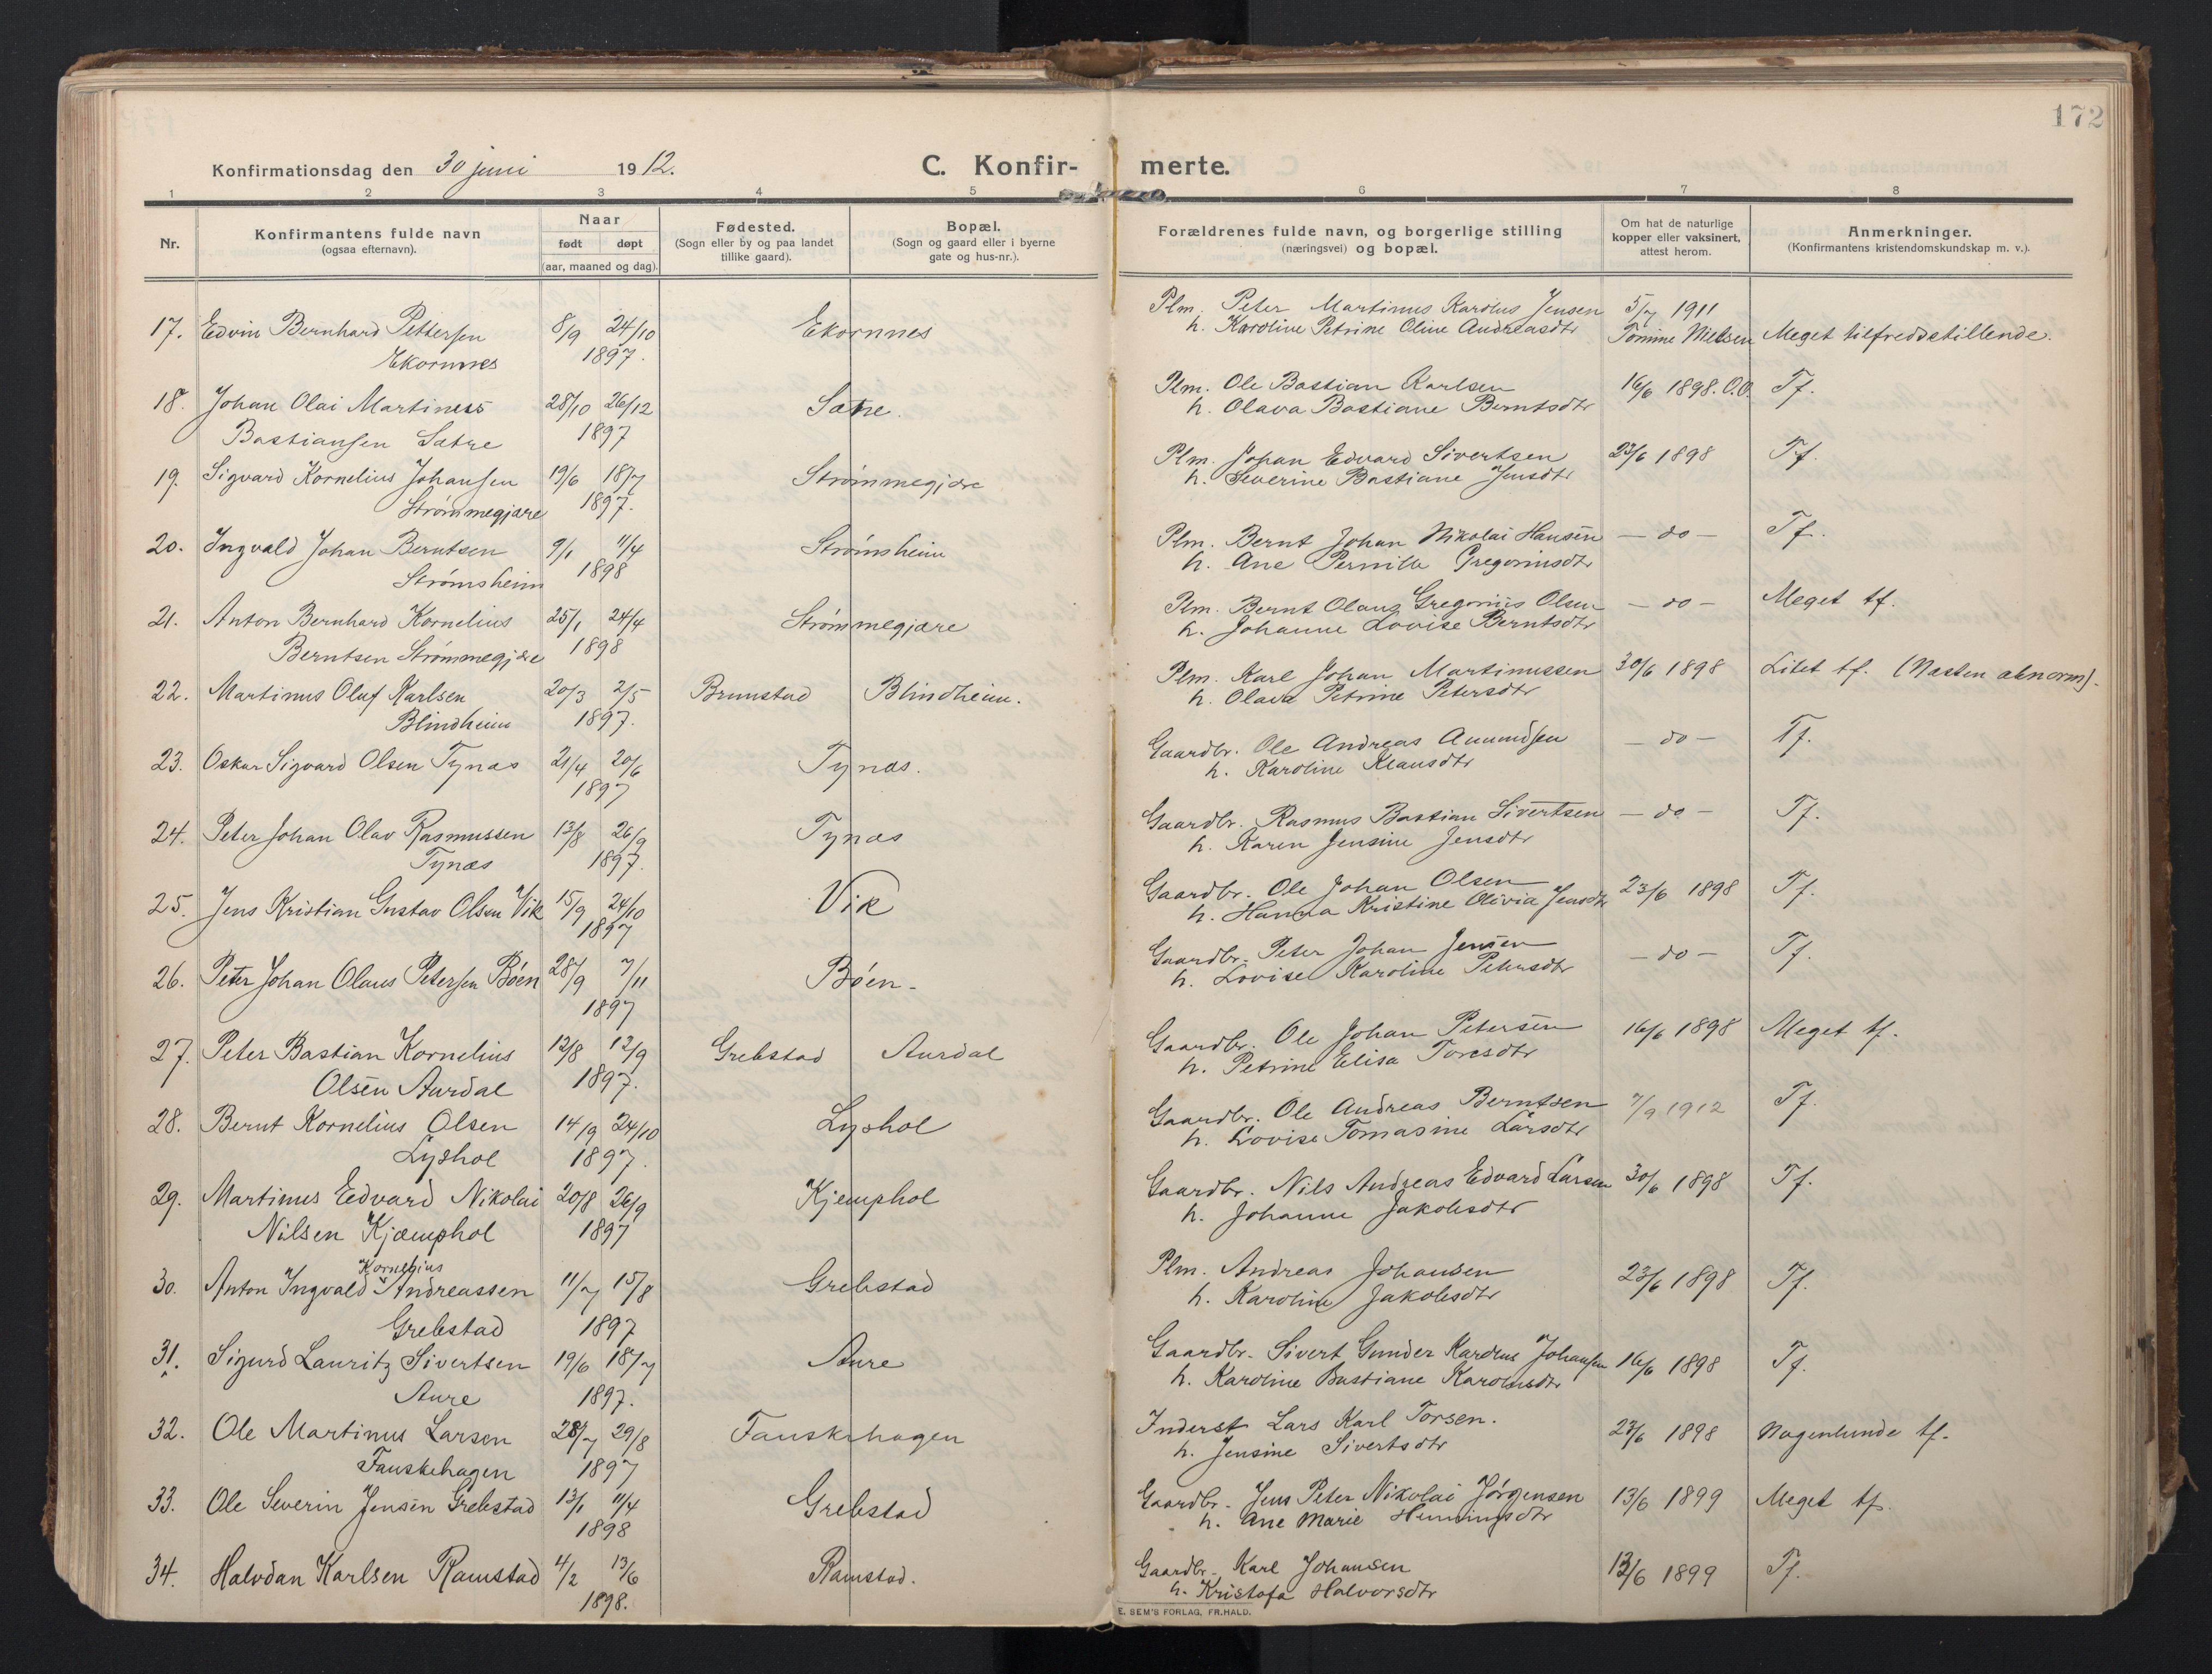 172
Konfirmationsdag den 30 juni 1912.
C. Konfirmerte.
1 2 3 4 5 6 7 8
Nr.
Konfirmantens fulde navn
(ogsaa efternavn).
Naar
født døpt
(aar, maaned og dag).
Fødested.
(Sogn eller by og paa landet
tillike gaard).
Bopæl.
(Sogn og gaard eller i byerne
gate og hus-nr.).
Forældrenes fulde navn, og borgerlige stilling
(næringsvei) og bopæl.
Om hat de naturlige
kopper eller vaksinert,
attest herom.
Anmerkninger.
(Konfirmantens kristendomskundskap m. v.).
17. Edvin Bernhard Pettersen 8/9 24/10 Ekornnes Plm. Peter Martinus Karolus Jensen 5/7 1911
Ekornnes 1897. h. Karoline Petrine Oline Andreasdtr Tomine Nielsen Meget tilfredsstillende.
18. Johan Olai Martines 28/10 26/12 Sætre. Plm. Ole Bastian Karlsen 16/6 1898. O.O. Tf.
Bastiansen Sætre 1897 h. Olava Bastiane Berntsdtr
19. Sigvard Kornelius Johansen 19/6 18/7 Strømmegjære Plm. Johan Edvard Sivertsen 23/6 1898 Tf.
Strømmegjære 1897. h. Severine Bastiane Jensdtr
20. Ingvald Johan Berntsen 9/1 11/4 Strømsheim Plm. Bernt Johan Nikolai Hansen — do — Tf.
Strømsheim 1898 h. Ane Pernille Gregoriusdtr
21. Anton Bernhard Kornelius 25/1 24/4 Strømmegjære Plm. Bernt Olaus Gregorius Olsen — do — Meget tf.
Berntsen Strømmegjære 1898 h. Johanne Lovise Berntsdtr
22. Martinus Oluf Karlsen 20/3 2/5 Brunstad Blindheim. Plm. Karl Johan Martinussen 30/6 1898 Litet tf. (Næsten abnorm).
Blindheim 1897. h. Olava Petrine Petersdtr
23. Oskar Sigvard Olsen Tynæs 21/4 20/6 Tynæs. Gaardbr. Ole Andreas Amundsen — do — Tf.
1897 h. Karoline Klausdtr
24. Peter Johan Olav Rasmussen 13/8 26/9 Tynæs Gaardbr. Rasmus Bastian Sivertsen — do — Tf.
Tynæs 1897. h. Karen Jensine Jensdtr
25. Jens Kristian Gustav Olsen Vik 15/9 24/10 Vik Gaardbr. Ole Johan Olsen 23/6 1898 Tf.
1897 h. Hanna Kristine Olivia Jensdtr
26. Peter Johan Olaus Petersen Bøen 28/9 7/11 Bøen - Gaardbr. Peter Johan Jensen — do — Tf.
1897 h. Lovise Karoline Petersdtr
27. Peter Bastian Kornelius 12/8 12/9 Grebstad Aurdal Gaardbr. Ole Johan Petersen 16/6 1898 Meget tf.
Olsen Aurdal 1897. h. Petrine Elisa Toresdtr
28. Bernt Kornelius Olsen 14/9 24/10 Lyshol Gaardbr. Ole Andreas Berntsen 7/9 1912 Tf.
Lyshol 1897. h. Lovise Tomasine Larsdtr
29. Martinus Edvard Nikolai 20/8 26/9 Kjemphol Gaardbr. Nils Andreas Edvard Larsen 30/6 1898 Tf.
Nilsen Kjæmphol 1897 h. Johanne Jakobsdtr
Kornelius
30. Anton Ingvald Andreassen 11/7 15/8 Grebstad Plm. Andreas Johansen 23/6 1898 Tf.
Grebstad 1897 h. Karoline Jakobsdtr
31. Sigurd Lauritz Sivertsen 19/6 18/7 Aure Gaardbr. Sivert Gunder Karolus Johansen 16/6 1898 Tf.
Aure 1897. h. Karoline Bastiane Karolusdtr
32. Ole Martinus Larsen 28/7 29/8 Fauskehagen Inderst Lars Karl Torsen. 23/6 1898 Nogenlunde tf.
Fauskehagen 1897 h. Jensine Sivertsdtr
33. Ole Severin Jensen Grebstad 13/1 11/4 Grebstad Gaardbr. Jens Peter Nikolai Jørgensen 13/6 1899 Meget tf.
1898 h. Ane Marie Henningsdtr
34. Halvdan Karlsen Ramstad 4/2 13/6 Ramstad. Gaardbr. Karl Johansen 13/6 1899 Tf.
1898. h. Kristofa Halvorsdtr
E. SEM'S FORLAG, FR.HALD.